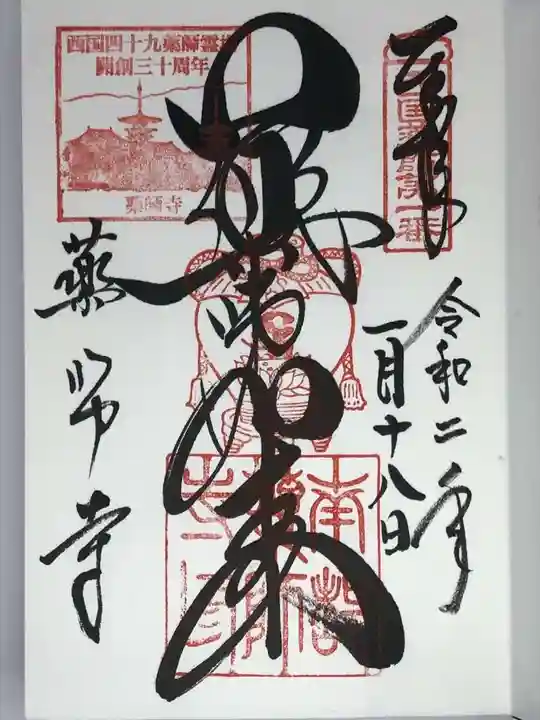 奉拝
西国薬師第一番
令和二年
一月十八日
薬師如来
西国四十九薬師霊場
開創三十周年
薬師寺
薬師寺